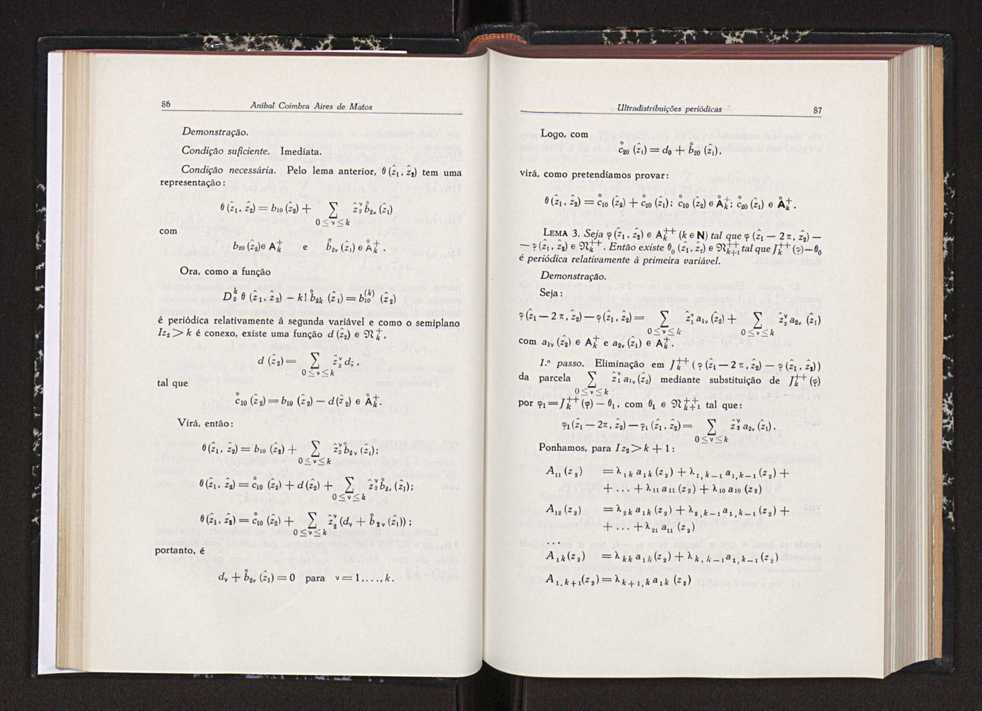 86 Aníbal Coimbra Aires de Matos
Demonstração.
Condição suficiente. Imediata.
Condição necessária. Pelo lema anterior, θ (ẑ₁, ẑ₂) tem uma
representação:
θ (ẑ₁, ẑ₂) = b₁₀ (ẑ₂) + ∑ ẑ₂^ν b̊₂ᵥ (ẑ₁)
0 ≤ ν ≤ k
com
b₁₀ (ẑ₂) e A_k^+ e b̊₂ᵥ (ẑ₁) e Å_k^+ .
Ora, como a função
D₂^k θ (ẑ₁, ẑ₂) — k! b̊₂ₖ (ẑ₁) = b₁₀^(k) (ẑ₂)
é periódica relativamente à segunda variável e como o semiplano
Iz₂ > k é conexo, existe uma função d (ẑ₂) e 𝔑_k^+ ,
d (ẑ₂) = ∑ ẑ₂^ν dᵥ ,
0 ≤ ν ≤ k
tal que
c̊₁₀ (ẑ₂) = b₁₀ (ẑ₂) — d (ẑ₂) e Å_k^+.
Virá, então:
θ (ẑ₁, ẑ₂) = b₁₀ (ẑ₂) + ∑ ẑ₂^ν b̊₂ᵥ (ẑ₁);
0 ≤ ν ≤ k
θ (ẑ₁, ẑ₂) = c̊₁₀ (ẑ₂) + d (ẑ₂) + ∑ ẑ₂^ν b̊₂ᵥ (ẑ₁);
0 ≤ ν ≤ k
θ (ẑ₁, ẑ₂) = c̊₁₀ (ẑ₂) + ∑ ẑ₂^ν (dᵥ + b̊₂ᵥ (ẑ₁)) ;
0 ≤ ν ≤ k
portanto, é
dᵥ + b̊₂ᵥ (ẑ₁) = 0 para ν = 1..., k.
Ultradistribuições periódicas 87
Logo, com
c̊₂₀ (ẑ₁) = d₀ + b̊₂₀ (ẑ₁),
virá, como pretendíamos provar:
θ (ẑ₁, ẑ₂) = c̊₁₀ (ẑ₂) + c̊₂₀ (ẑ₁); c̊₁₀ (ẑ₂) e Å_k^+; c̊₂₀ (ẑ₁) e Å_k^+ .
LEMA 3. Seja φ (ẑ₁, ẑ₂) e A_k^++ (k e N) tal que φ (ẑ₁ — 2π, ẑ₂) —
— φ (ẑ₁, ẑ₂) e 𝔑_k^++ . Então existe θ₀ (ẑ₁, ẑ₂) e 𝔑_{k+1}^++ tal que J_k^++ (φ) — θ₀
é periódica relativamente à primeira variável.
Demonstração.
Seja:
φ (ẑ₁ — 2π, ẑ₂) — φ (ẑ₁, ẑ₂) = ∑ ẑ₁^ν a₁ᵥ (ẑ₂) + ∑ ẑ₂^ν a₂ᵥ (ẑ₁)
0 ≤ ν ≤ k 0 ≤ ν ≤ k
com a₁ᵥ (ẑ₂) e A_k^+ e a₂ᵥ (ẑ₁) e A_k^+ .
1.º passo. Eliminação em J_k^++ (φ (ẑ₁ — 2π, ẑ₂) — φ (ẑ₁, ẑ₂))
da parcela ∑ ẑ₁^ν a₁ᵥ (ẑ₂) mediante substituição de J_k^++ (φ)
0 ≤ ν ≤ k
por φ₁ = J_k^++ (φ) — θ₁, com θ₁ e 𝔑_{k+1}^++ tal que:
φ₁ (ẑ₁ — 2π, ẑ₂) — φ₁ (ẑ₁, ẑ₂) = ∑ ẑ₂^ν a₂ᵥ (ẑ₁).
0 ≤ ν ≤ k
Ponhamos, para Iz₂ > k + 1:
A₁₁ (z₂) = λ_{1k} a_{1k} (z₂) + λ_{1,k—1} a_{1,k—1} (z₂) +
+ ... + λ₁₁ a₁₁ (z₂) + λ₁₀ a₁₀ (z₂)
A₁₂ (z₂) = λ_{2k} a_{1k} (z₂) + λ_{2,k—1} a_{1,k—1} (z₂) +
+ ... + λ₂₁ a₁₁ (z₂)
...
A_{1k} (z₂) = λ_{kk} a_{1k} (z₂) + λ_{k,k—1} a_{1,k—1} (z₂)
A_{1,k+1} (z₂) = λ_{k+1,k} a_{1k} (z₂)